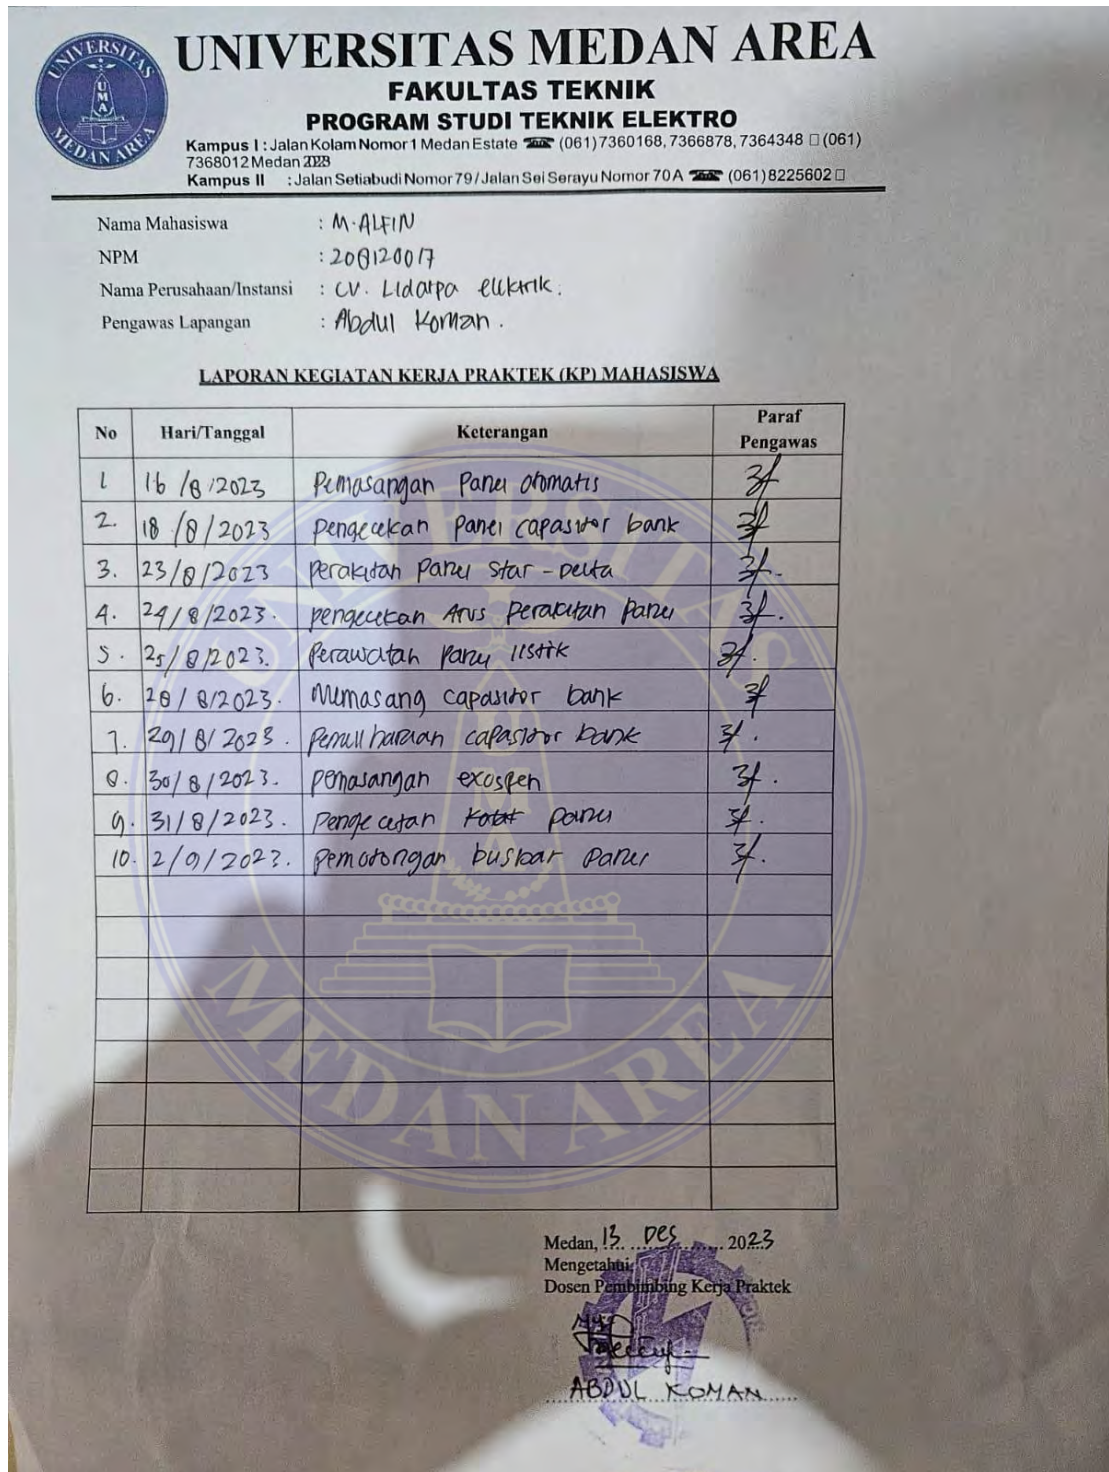 UNIVERSITAS MEDAN AREA
FAKULTAS TEKNIK
PROGRAM STUDI TEKNIK ELEKTRO
Kampus I : Jalan Kolam Nomor 1 Medan Estate ☎ (061) 7360168, 7366878, 7364348 (061)
7368012 Medan
Kampus II : Jalan Setiabudi Nomor 79 / Jalan Sei Serayu Nomor 70 A ☎ (061) 8225602
UNIVERSITAS MEDAN AREA
UMA
Nama Mahasiswa : M. ALFIN
NPM : 208120017
Nama Perusahaan/Instansi : CV. Lidarpa elektrik.
Pengawas Lapangan : Abdul Koman.
LAPORAN KEGIATAN KERJA PRAKTEK (KP) MAHASISWA
No Hari/Tanggal Keterangan Paraf Pengawas
1 16/8/2023 Pemasangan Panel otomatis
2. 18/8/2023 pengecekan Panel capasitor bank
3. 23/8/2023 perakitan Panel Star-Delta
4. 24/8/2023. pengecekan Arus Perakitan Panel
5. 25/8/2023. Perawatan Panel listrik
6. 28/8/2023. Memasang capasitor bank
7. 29/8/2023. Pemeliharaan capasitor bank
8. 30/8/2023. pemasangan exospen
9. 31/8/2023. Pengecekan panel
10. 2/9/2023. pemotongan busbar Panel
UNIVERSITAS MEDAN AREA
UMA
Medan, 13 Des 2023
Mengetahui,
Dosen Pembimbing Kerja Praktek
ABDUL KOMAN